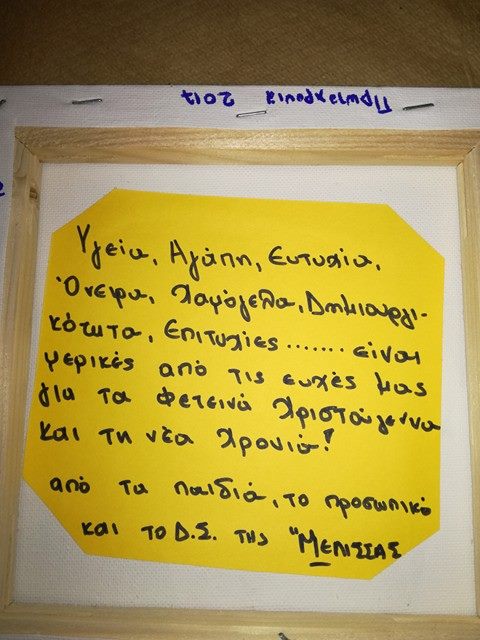 Πρωτοχρονιά 2017
Υγεία, Αγάπη, Ευτυχία,
Όνειρα, Χαμόγελα, Δημιουργι-
κότητα, Επιτυχίες ....... είναι
μερικές από τις ευχές μας
για τα φετεινά Χριστούγεννα
και τη νέα Χρονιά!
από τα παιδιά, το προσωπικό
και το Δ.Σ. της "ΜΕΛΙΣΣΑΣ